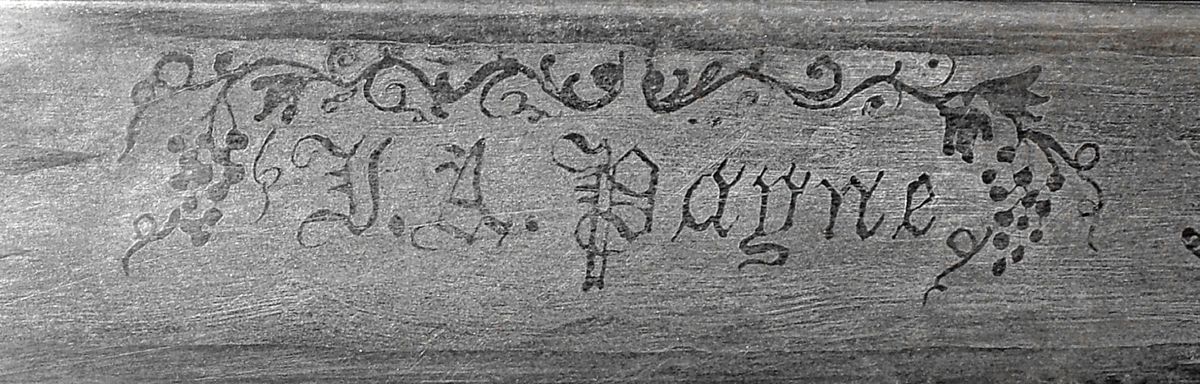 J. A. Payne